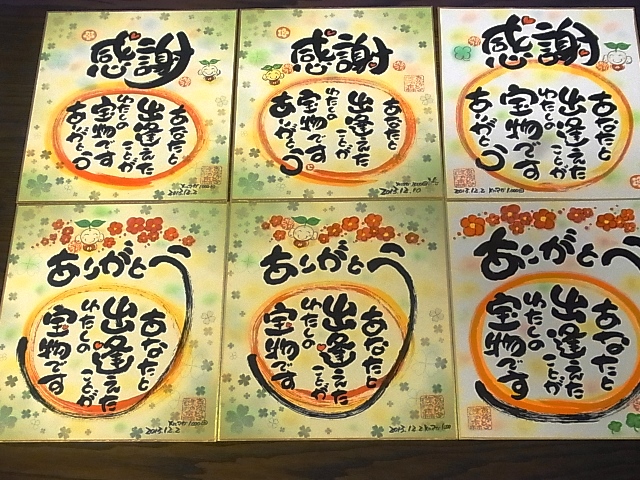 感謝
あなたと
出逢えた
ことが
わたしの
宝物です
ありがとう
2015.12.2
感謝
あなたと
出逢えた
ことが
わたしの
宝物です
ありがとう
2015.12.10
感謝
あなたと
出逢えた
ことが
わたしの
宝物です
ありがとう
2015.12.2
ありがとう
あなたと
出逢えた
ことが
わたしの
宝物です
2015.12.2
ありがとう
あなたと
出逢えた
ことが
わたしの
宝物です
2015.12.2
ありがとう
あなたと
出逢えた
ことが
わたしの
宝物です